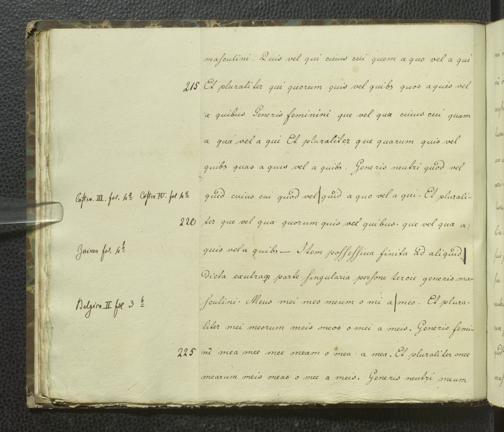 masculini. Quis vel qui cuius cui quem a quo vel a qui
215 Et pluraliter qui quorum quis vel quibs quos a quis vel
a quibus Generis feminini que vel qua cuius cui quam
a qua vel a qui Et pluraliter que quarum quis vel
quibs quas a quis vel a quibs. Generis neutri quod vel
Castro. III. fol. 4b Castro IV. fol 4b quid cuius cui quod vel quid a quo vel a qui. Et plurali-
220 ter que vel qua quorum quis vel quibus. que vel qua a
fol. 4b quis vel a quibs — Item possessiva finita ad aliquid
Dicta ex utraque parte singularia persone tercie generis ma-
Belgica II fol 3 b sculini. Meus mei meo meum o mi a meo. Et plura-
liter mei meorum meis meos o mei a meis. Generis femi-
225 ni mea mee mee meam o mea a mea. Et pluraliter mee
mearum meis meas o mee a meis. Generis neutri meum